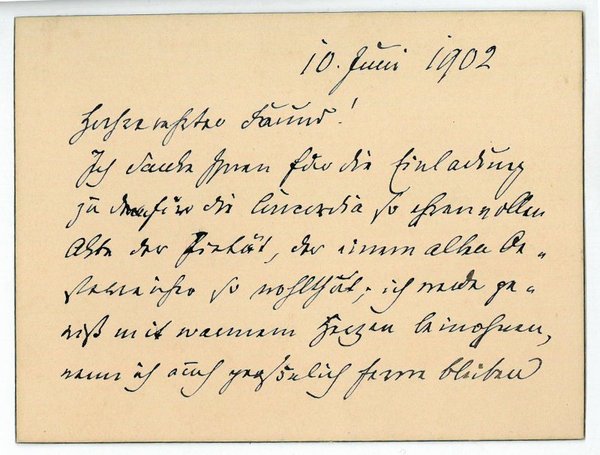 10. Juni 1902
Hochverehrter Freund!
Ich danke Ihnen für die Einladung
zu dem für die Concordia so ehrenvollen
Akte der Pietät, der einem alten Oe-
sterreicher so wohlthut; ich werde ge-
wiß mit warmem Herzen beiwohnen,
wenn ich auch persönlich ferne bleiben